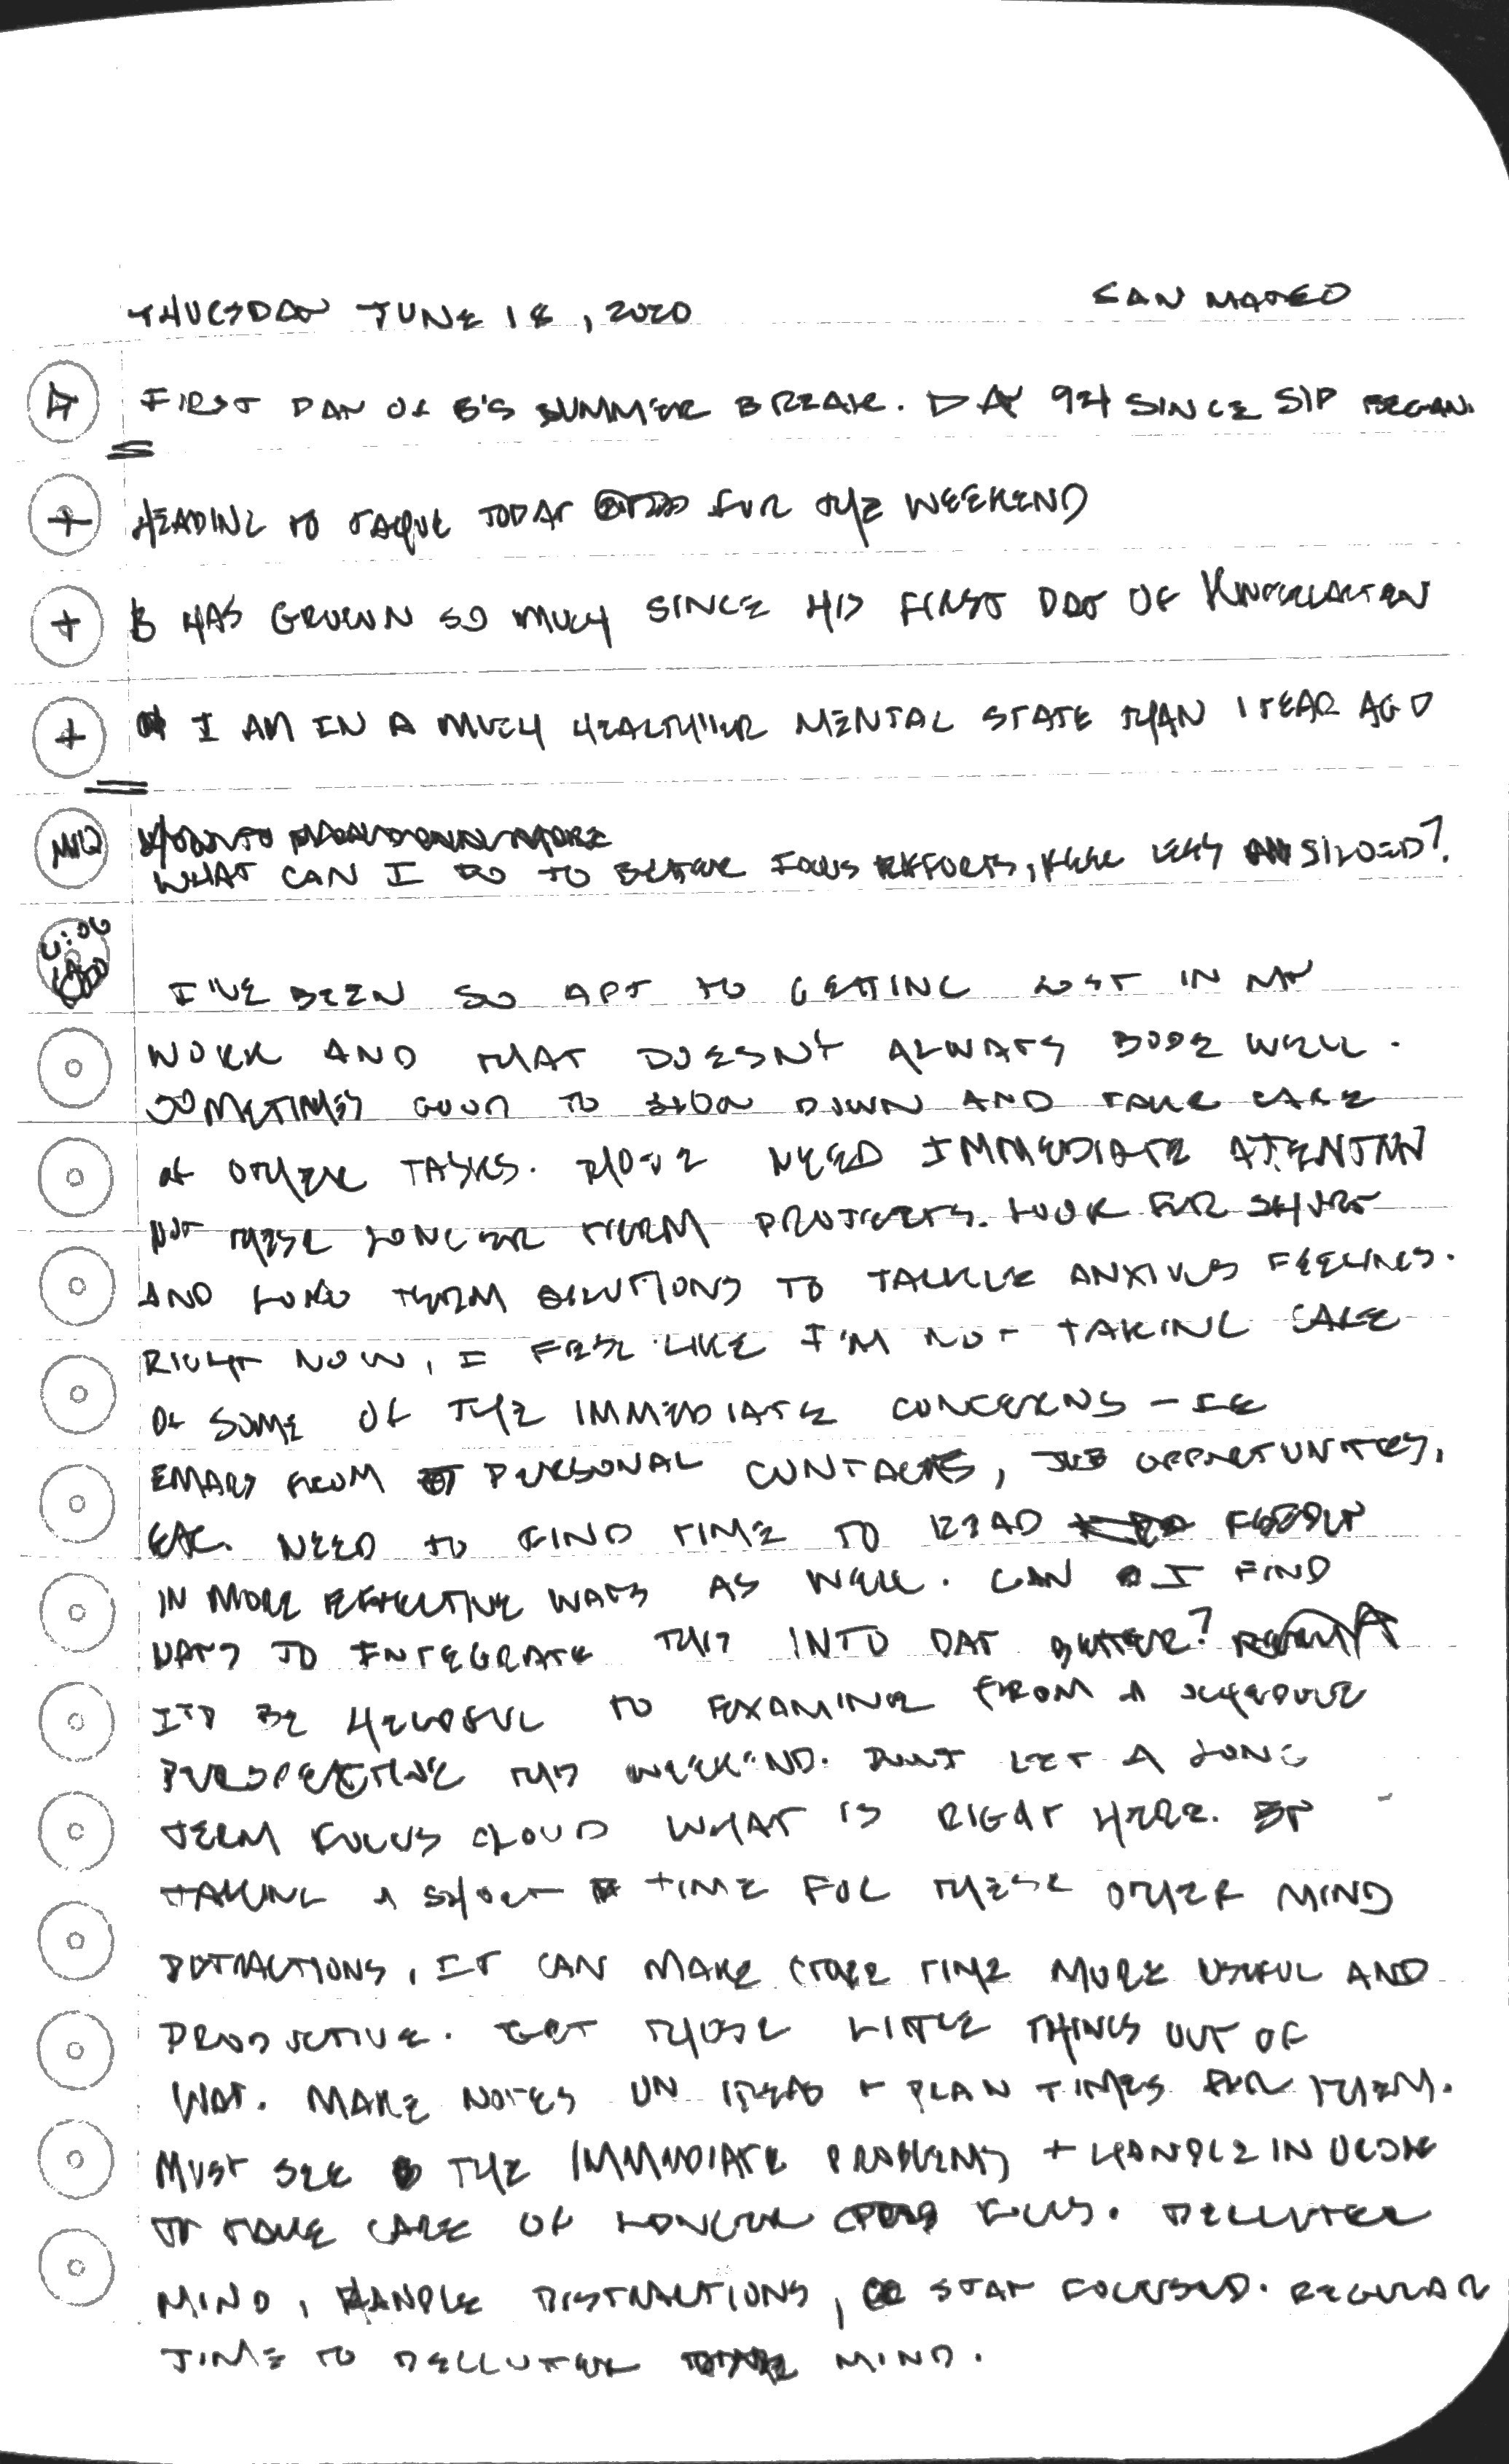 THURSDAY JUNE 18, 2020 SAN MATEO
FIRST DAY OF B'S SUMMER BREAK. DAY 94 SINCE SIP BEGAN.
HEADING TO TODAY FOR THE WEEKEND
B HAS GROWN SO MUCH SINCE HIS FIRST DAY OF KINDERGARTEN
I AM IN A MUCH HEALTHIER MENTAL STATE THAN 1 YEAR AGO
WHAT CAN I DO TO BETTER FOCUS EFFORTS, FEEL LESS SILOED?
I'VE BEEN SO APT TO GETTING LOST IN MY
WORK AND THAT DOESN'T ALWAYS BODE WELL.
SOMETIMES GOOD TO SLOW DOWN AND TAKE CARE
OF OTHER TASKS. THOSE NEED IMMEDIATE ATTENTION
NOT THESE LONGER TERM PROJECTS. LOOK FOR SHORT
AND LONG TERM SOLUTIONS TO TACKLE ANXIOUS FEELINGS.
RIGHT NOW, I FEEL LIKE I'M NOT TAKING CARE
OF SOME OF THE IMMEDIATE CONCERNS - IE
EMAILS FROM PERSONAL CONTACTS, JOB OPPORTUNITIES,
ETC. NEED TO FIND TIME TO READ FEEDLY
IN MORE EFFECTIVE WAYS AS WELL. CAN I FIND
WAYS TO INTEGRATE THIS INTO DAY BETTER?
IT'D BE HELPFUL TO EXAMINE FROM A SCHEDULE
PERSPECTIVE THIS WEEKEND. DON'T LET A LONG
TERM FOCUS CLOUD WHAT IS RIGHT HERE. BY
TAKING A SHORT TIME FOR THESE OTHER MIND
DISTRACTIONS, IT CAN MAKE OTHER TIME MORE USEFUL AND
PRODUCTIVE. GET THOSE LITTLE THINGS OUT OF
WAY. MAKE NOTES ON IDEAS + PLAN TIMES FOR THEM.
MUST SEE THE IMMEDIATE PROBLEMS + HANDLE IN ORDER
TO TAKE CARE OF LONGER FOCUS. DECLUTTER
MIND, HANDLE DISTRACTIONS, STAY FOCUSED. REGULAR
TIME TO DECLUTTER MIND.